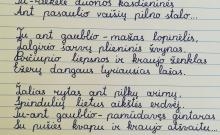 Tu - riekelė duonos kasdieninės
Ant pasaulio vaišių pilno stalo...
Tu ant gaublio - mažas lopinėlis,
Žalgirio šarvų plieninis žvynas,
liepsnos ir kraujo ženklas
Ežerų dangaus tyriausias lašas.
Šalias rytas ant pilkų arimų,
Spindulių lietus aikštės erdvėj.
Tu - ant gaublio - pamūdavęs gintaras
Su pušies kvapu ir kraujo atsvaitu